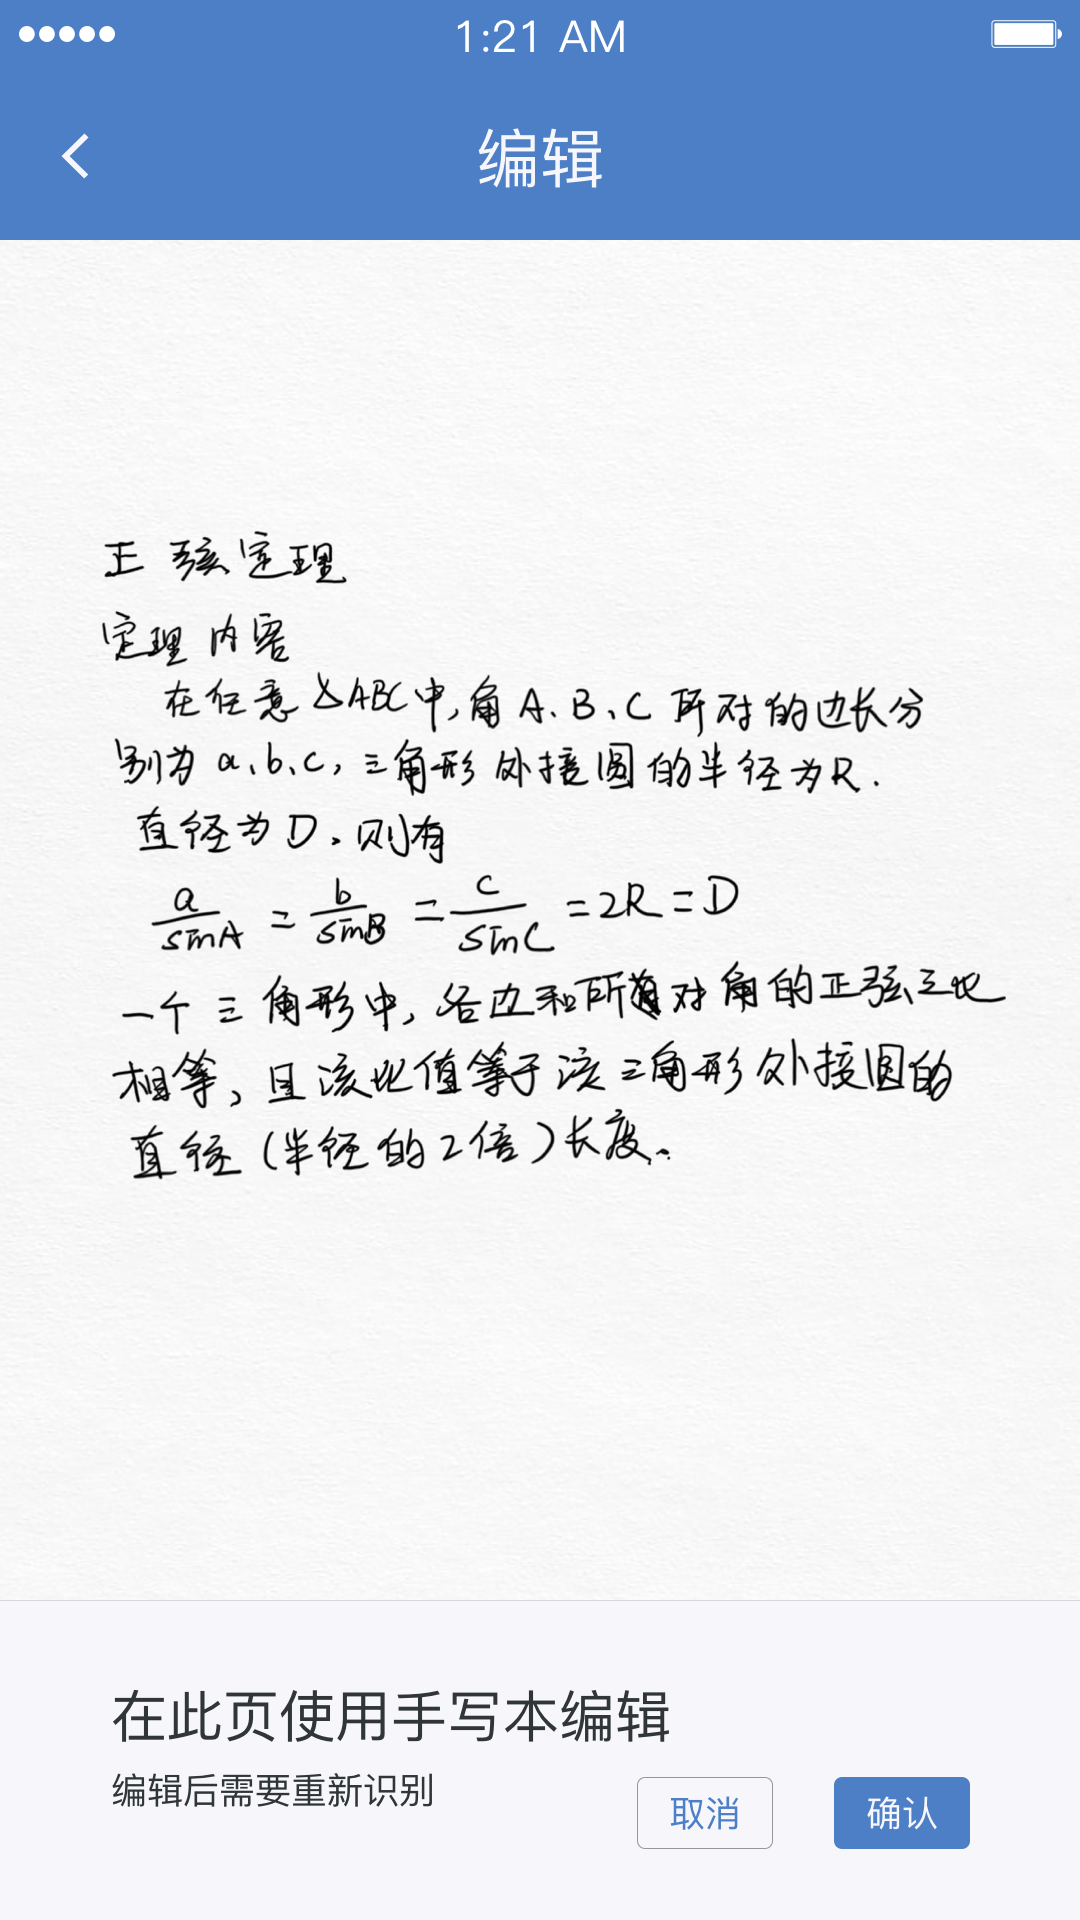 1:21 AM
编辑
正弦定理
定理内容
在任意△ABC中,角A、B、C所对的边长分
别为a、b、c,三角形外接圆的半径为R.
直径为D.则有
a/sinA = b/sinB = c/sinC = 2R = D
一个三角形中,各边和所对角的正弦之比
相等,且该比值等于该三角形外接圆的
直径(半径的2倍)长度.
在此页使用手写本编辑
编辑后需要重新识别
取消
确认